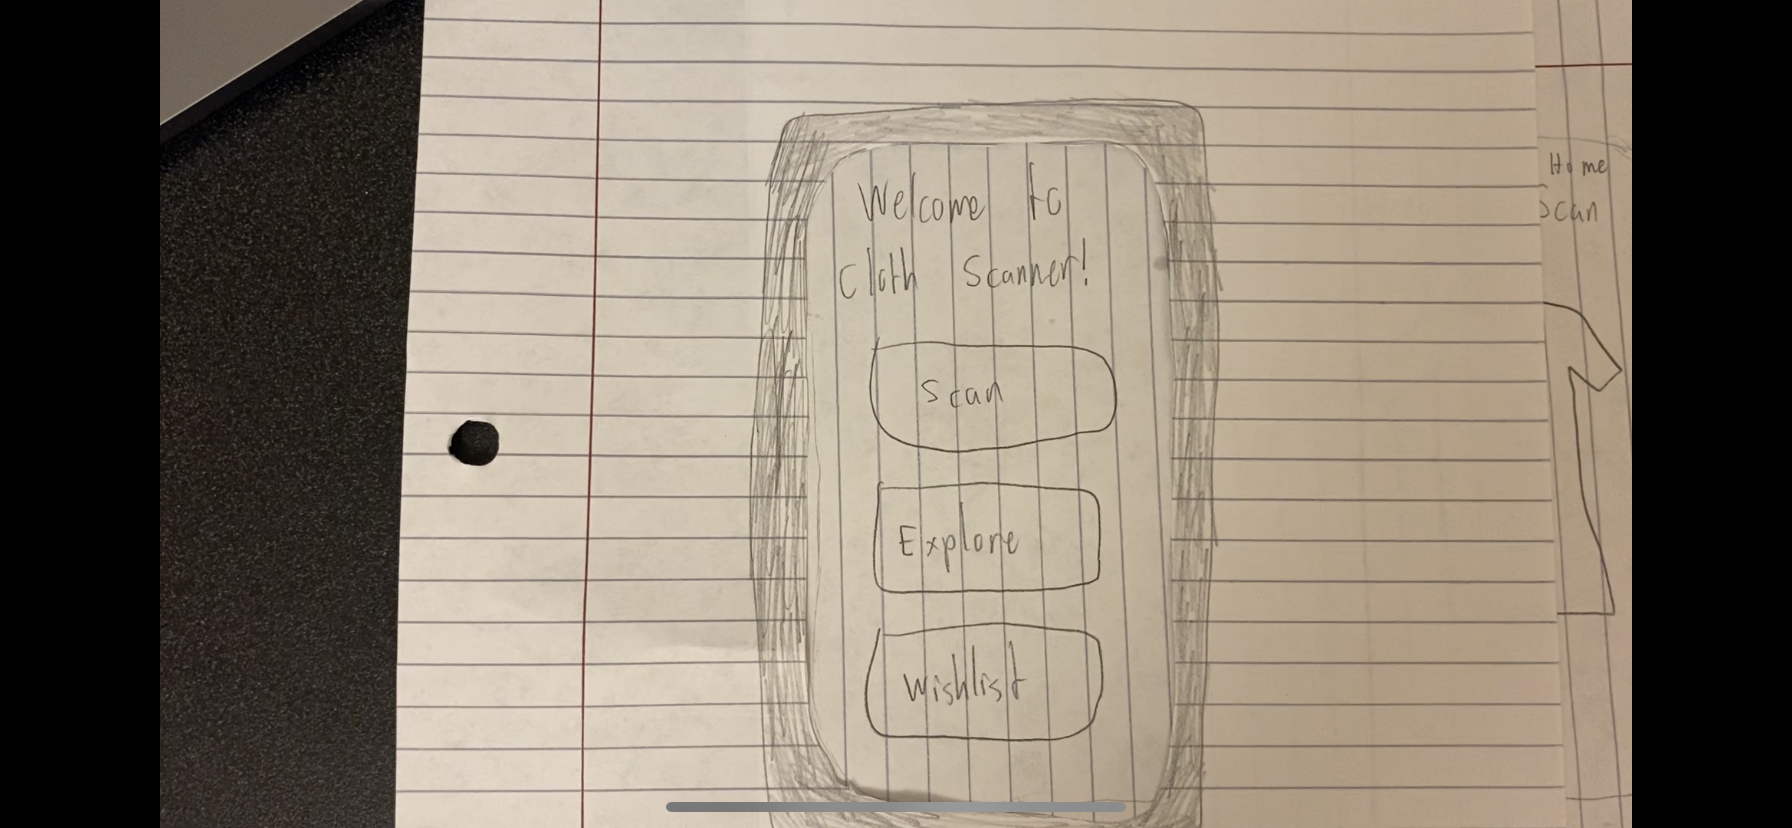 Welcome to
Cloth Scanner!
Scan
Explore
Wishlist
Home
Scan